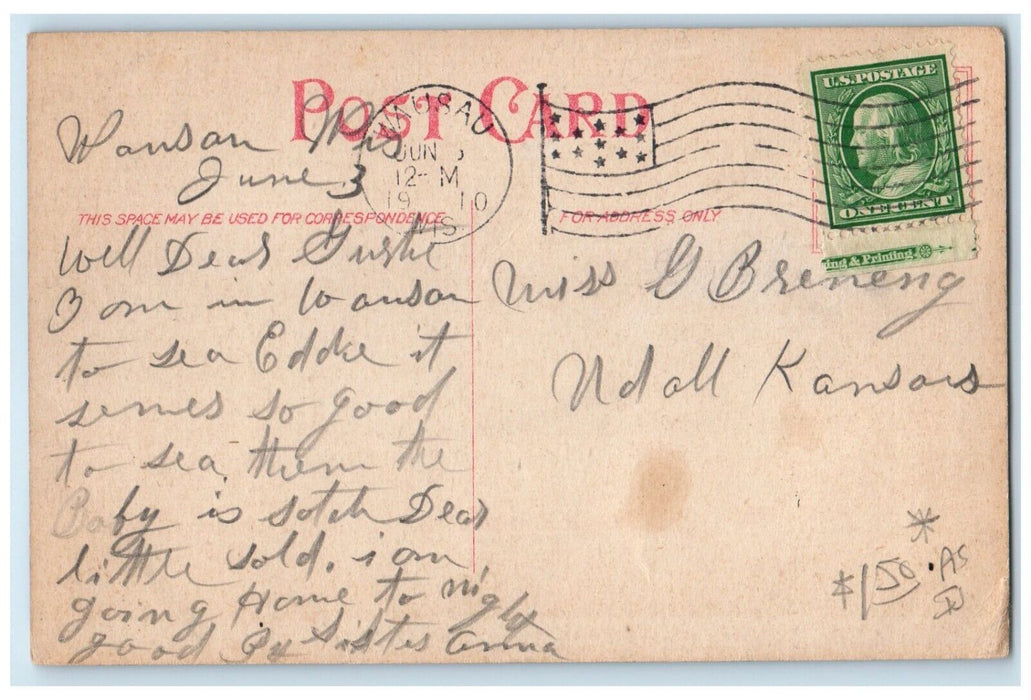 POST CARD
WAUSAU
JUN
12- M
19 10
WIS
U.S. POSTAGE
ONE CENT
ing & Printing
Wausau Wis
June 3
THIS SPACE MAY BE USED FOR CORRESPONDENCE
FOR ADDRESS ONLY
Well Dear Gustie
I am in Wausau
to sea Eddie it
semes so good
to sea them the
Baby is sutch Dear
little sold. i am
going Home to night
good By Sister Anna
Miss G Breneng
Udall Kansas
$1.50 . AS